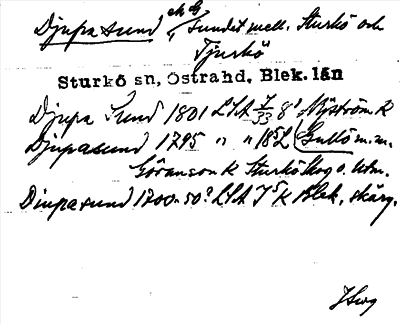 Djupasund Sundet mell. Sturkö och
Tjurkö
Sturkö sn, Östrahd, Blek. län
Djupa Sund 1801 LSA 7/33 8' Nyström K
Djupasund 1795 " " 18 (Gullö m.m.
Göranson K Sturkö Skog o. utm.
Diupasund 1700-50? LSA K Blek. skärg.